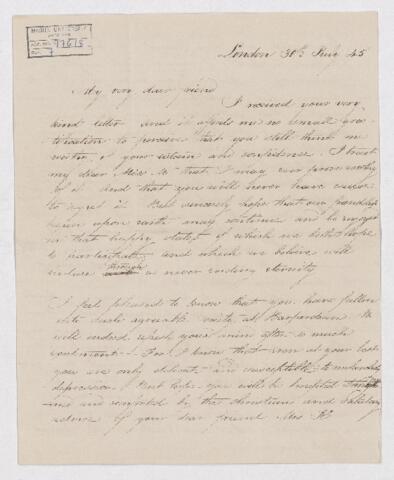 London 30th July 45
My very dear friend
I received your very
kind letter and it affords me no small gra-
tification to perceive that you still think me
worthy of your esteem and confidence. I trust
my dear Miss that I may ever prove worthy
of it and that you will never have cause
to regret it. Most sincerely hope that our friendship
begun upon earth may continue and be enjoyed
in that happy state of which we both hope
to partake and which we believe will
endure through a never ending eternity
I feel pleased to know that you have fallen
into such agreeable society at Harpenden. It
will indeed refresh your mind after so much
confinement. For I know that even at your best
you are only delicate and susceptible to melancholy
depression. But to be you will be benefited
and comforted by the christian and
advice of your dear friend Mrs